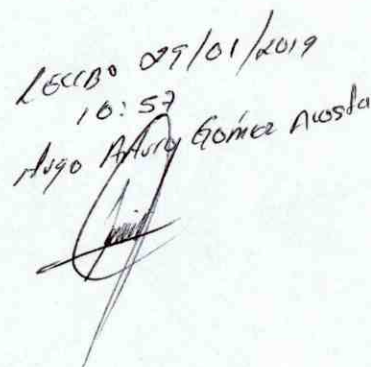 Recibo 29/01/2019
10:57
Hugo Arturo Gómez Acosta